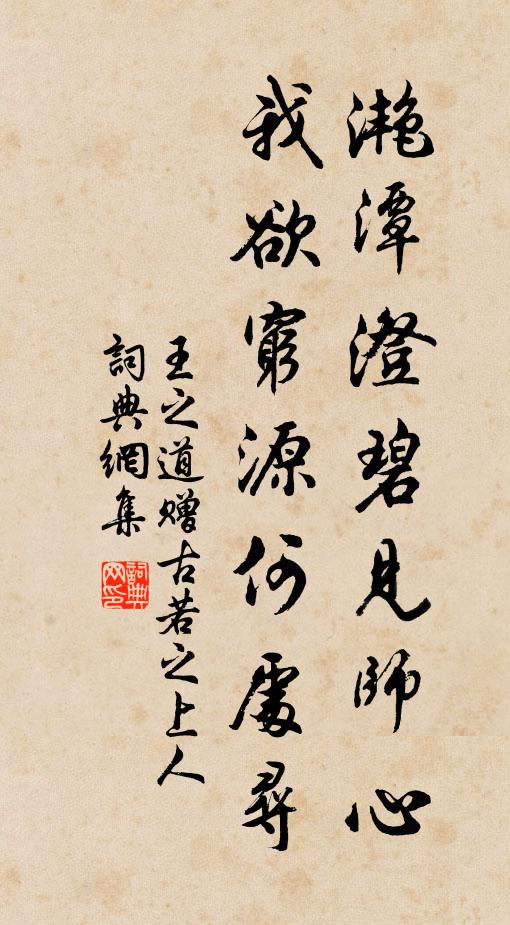 滟潭澄碧見師心
我欲窮源何處尋
王之道赠古若之上人
詞典網集
詞典网印